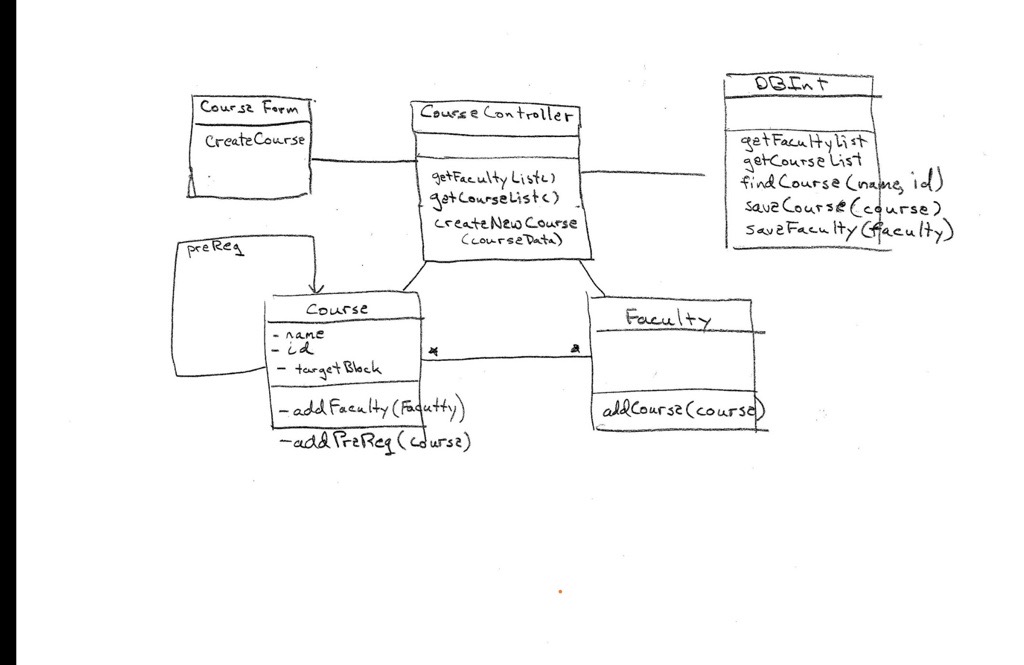 Course Form
createCourse
CourseController
getFacultyList()
getCourseList()
createNewCourse
(courseData)
DBInt
getFacultyList
getCourseList
findCourse(name, id)
saveCourse(course)
saveFaculty(faculty)
preReq
Course
- name
- id
- targetBlock
- addFaculty(Faculty)
- addPreReq(course)
*
*
Faculty
addCourse(course)